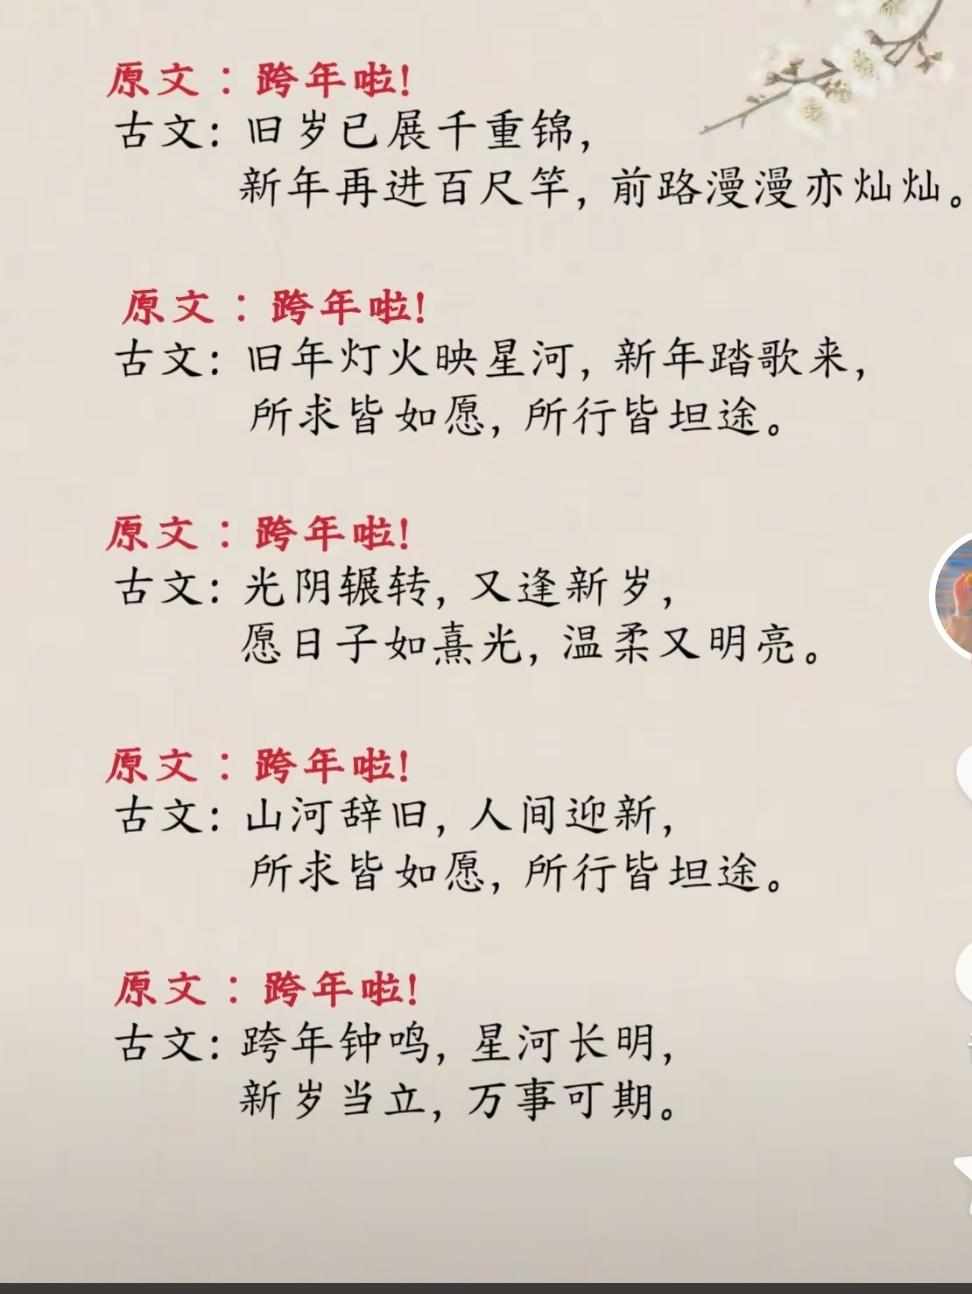 原文：跨年啦!
古文：旧岁已展千重锦，
新年再进百尺竿，前路漫漫亦灿灿。
原文：跨年啦!
古文：旧年灯火映星河，新年踏歌来，
所求皆如愿，所行皆坦途。
原文：跨年啦!
古文：光阴辗转，又逢新岁，
愿日子如熹光，温柔又明亮。
原文：跨年啦!
古文：山河辞旧，人间迎新，
所求皆如愿，所行皆坦途。
原文：跨年啦!
古文：跨年钟鸣，星河长明，
新岁当立，万事可期。